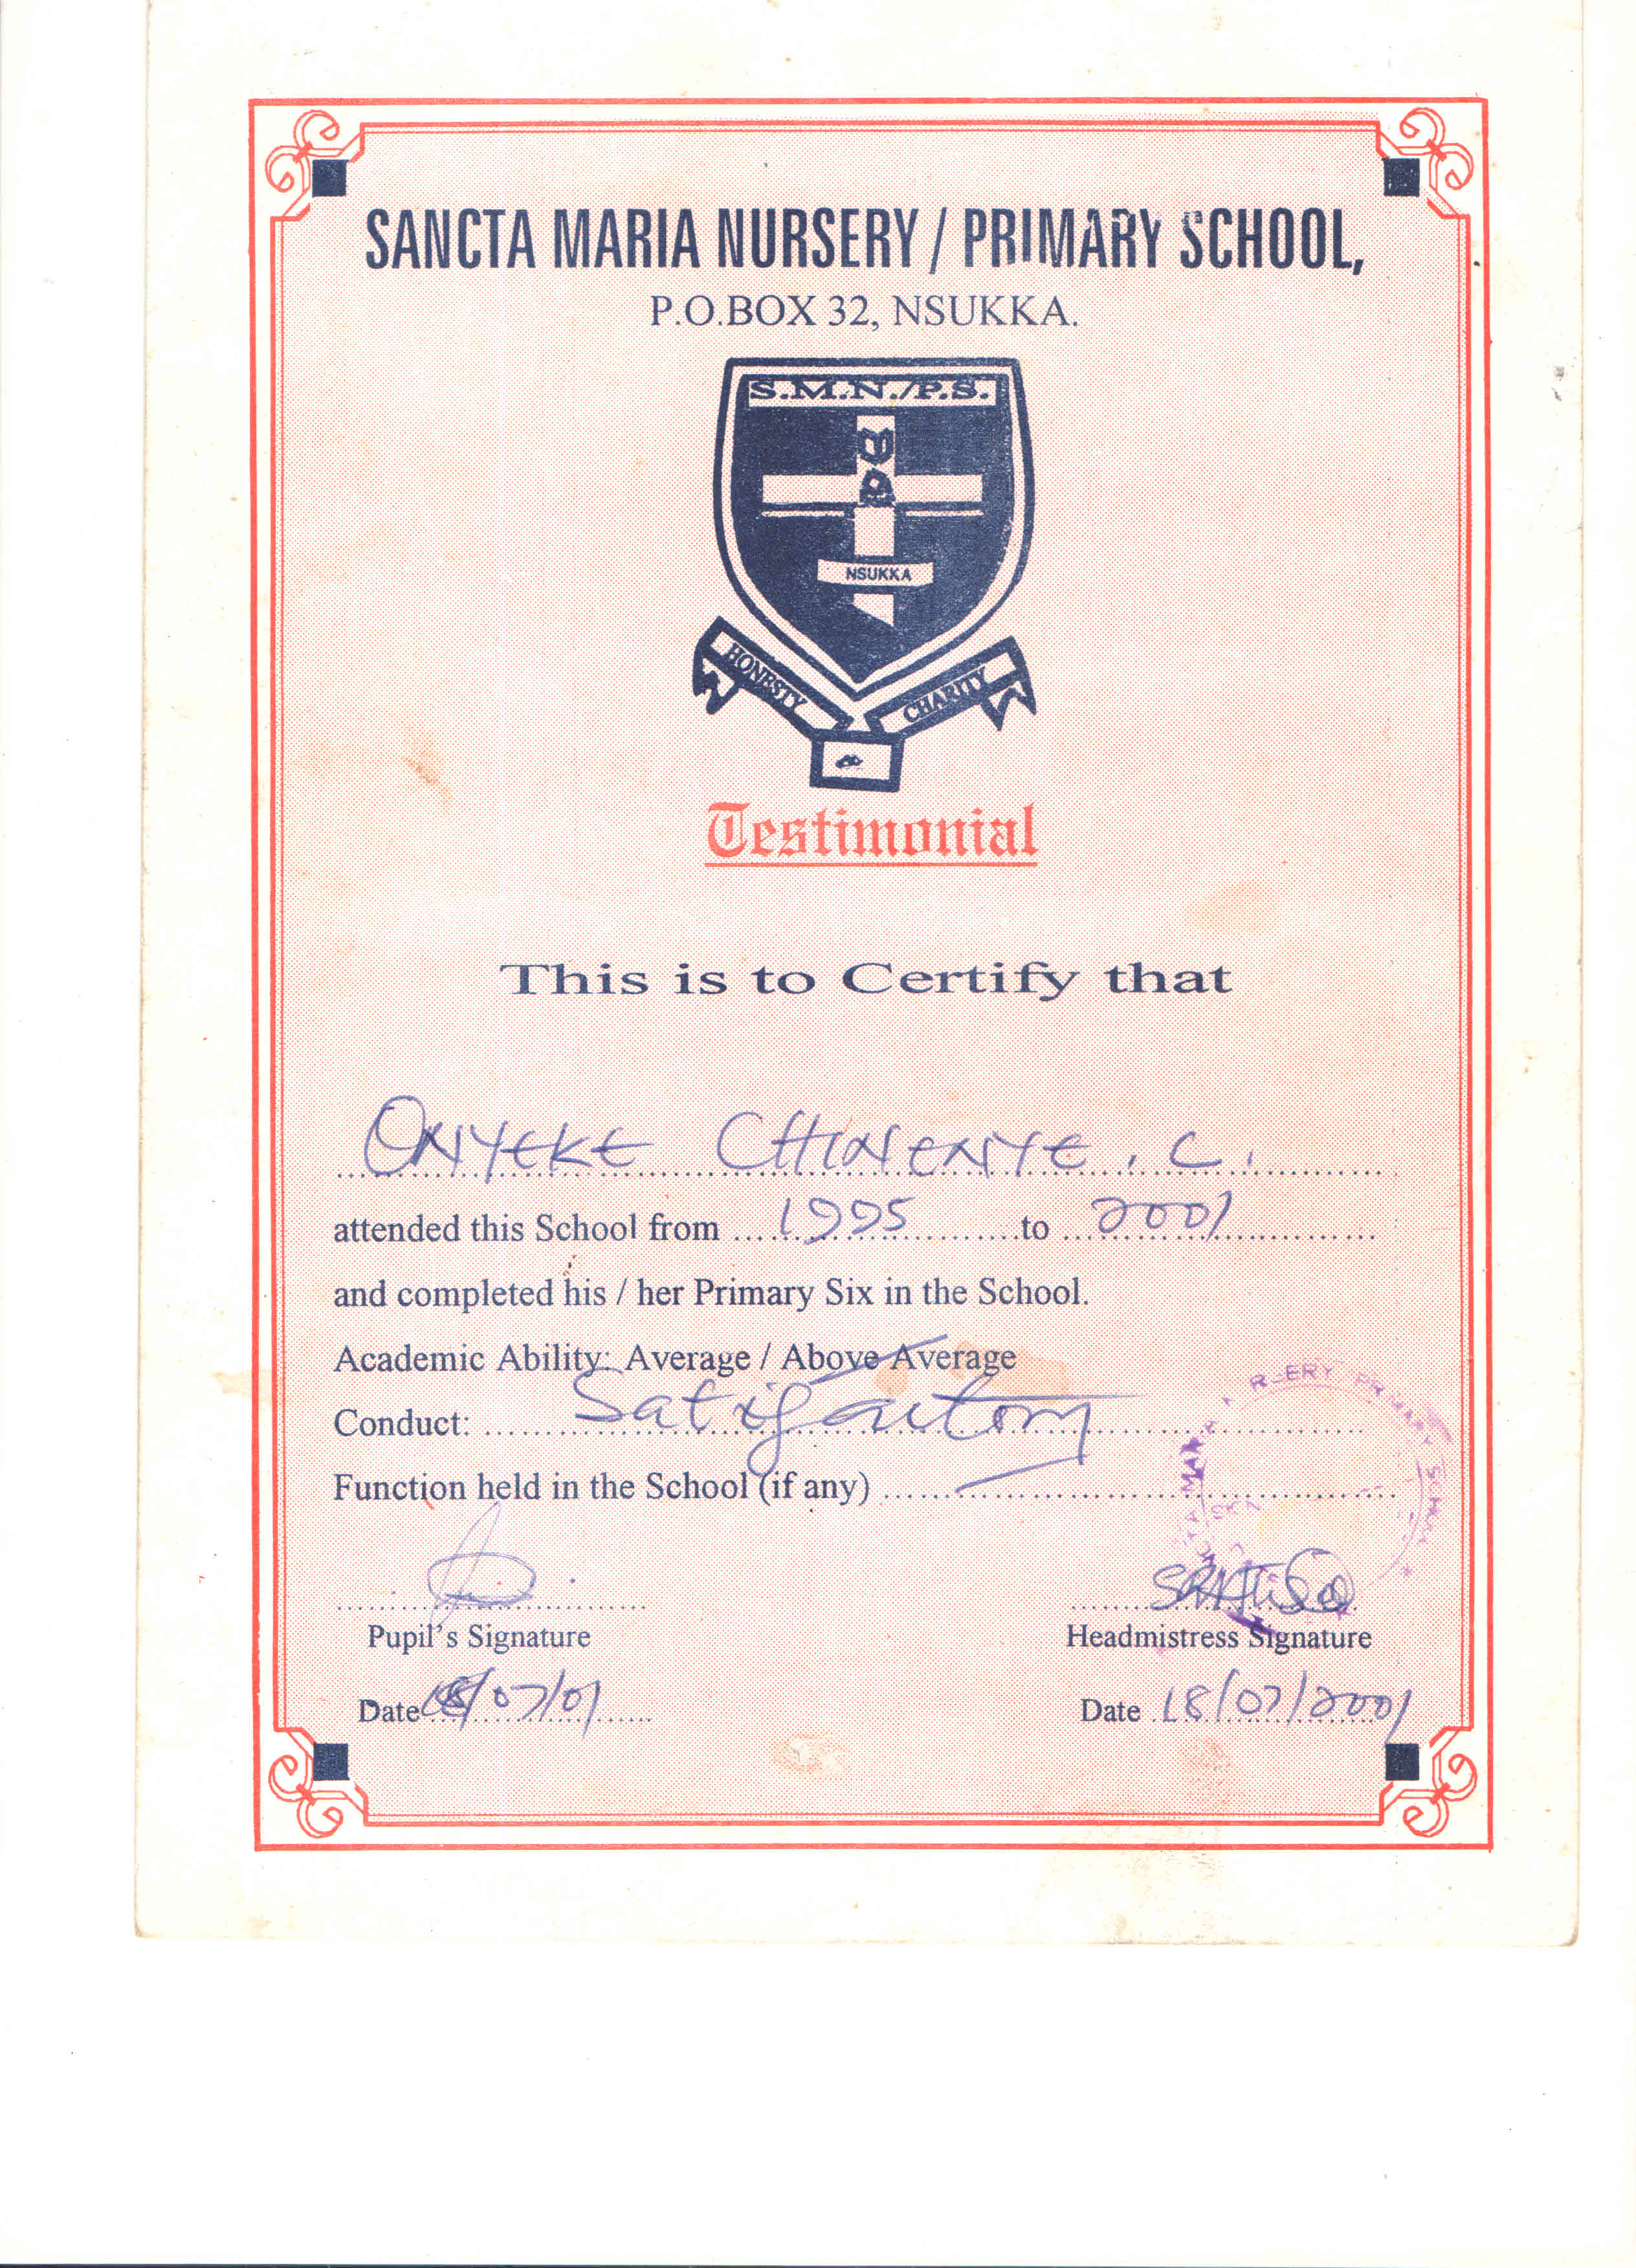 SANCTA MARIA NURSERY / PRIMARY SCHOOL,
P.O.BOX 32, NSUKKA.
S.M.N./P.S.
NSUKKA
HONESTY
CHARITY
Testimonial
This is to Certify that
ONYEKE CHINENYE. C.
attended this School from 1995 to 2001
and completed his / her Primary Six in the School.
Academic Ability: Average / Above Average
Conduct: Satisfactory
Function held in the School (if any)
Pupil's Signature
Headmistress Signature
Date 18/07/01
Date 18/07/2001